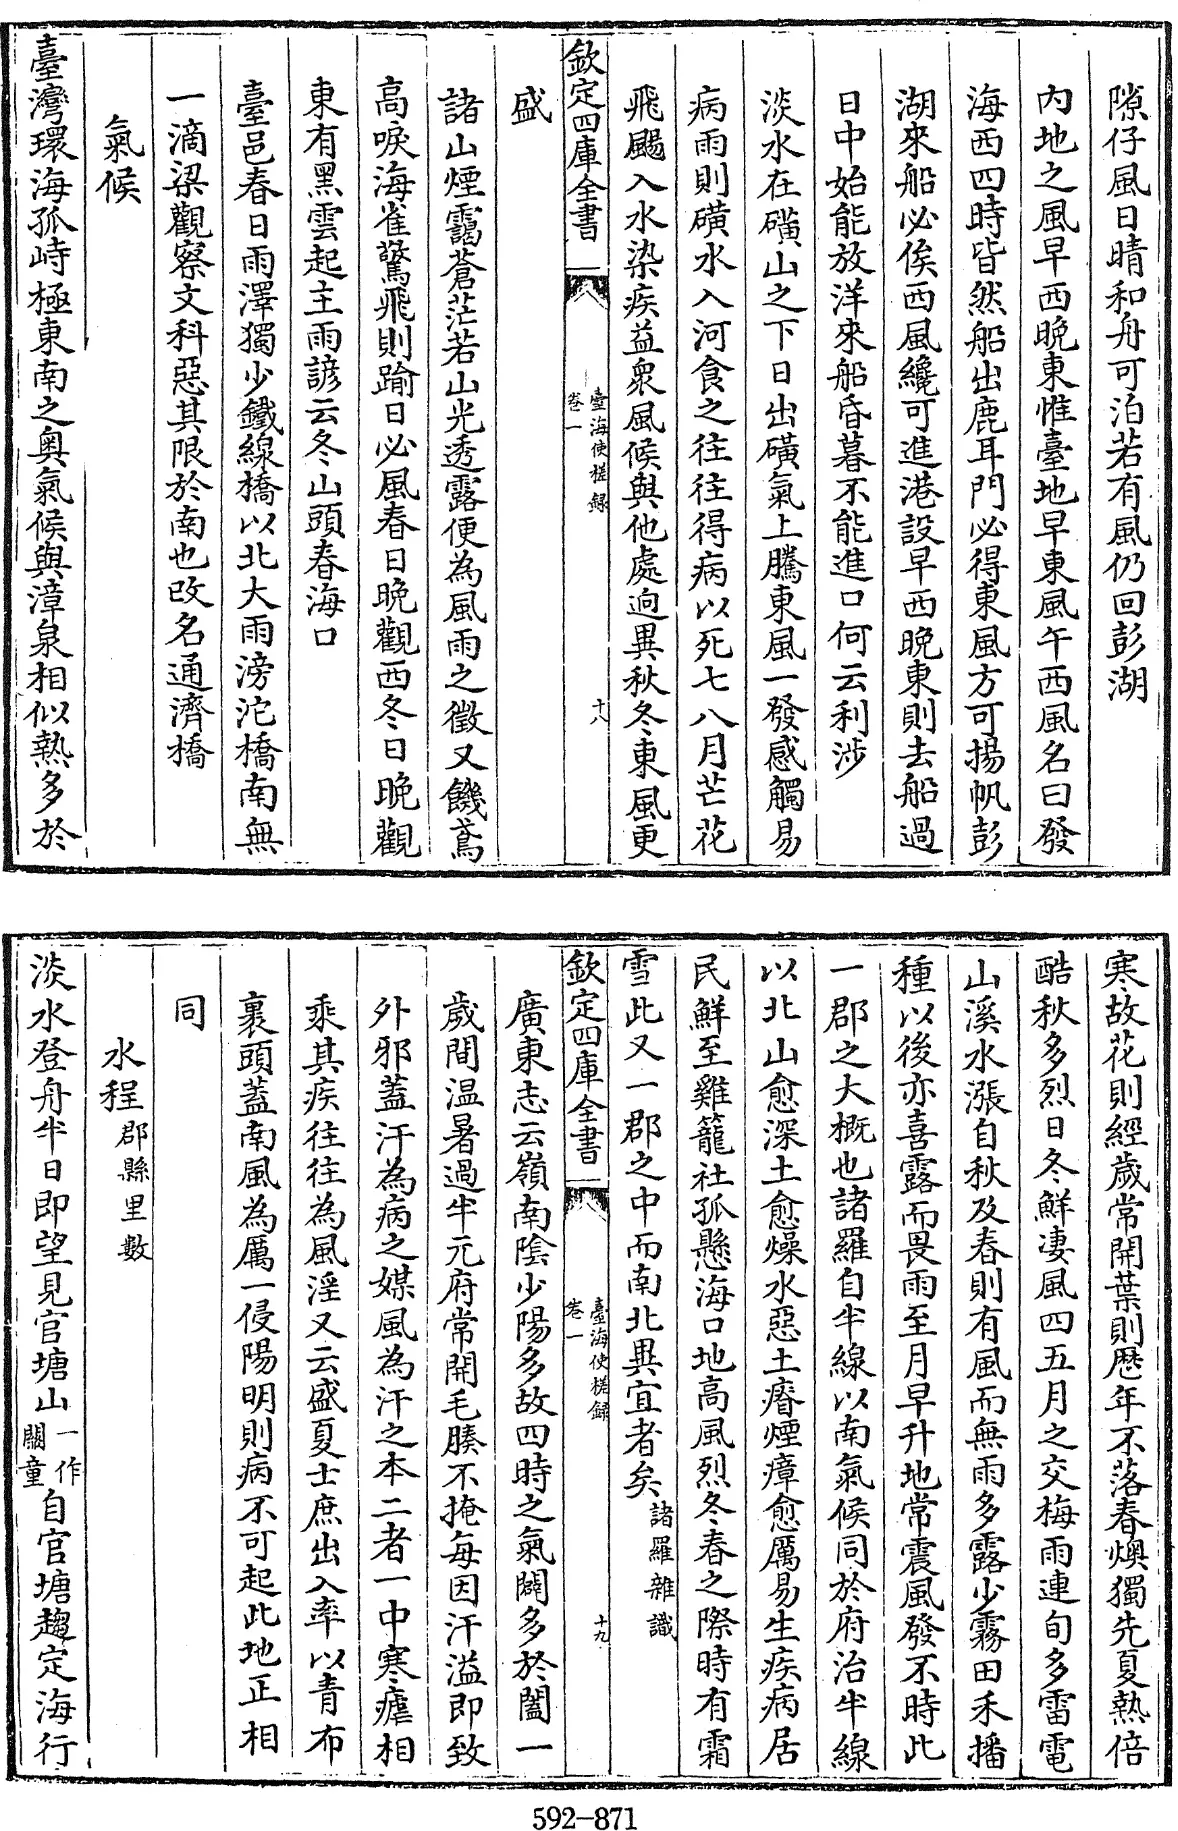 隙仔風日晴和舟可泊若有風仍回彭湖
內地之風早西晚東惟臺地早東風午西風名曰發
海西四時皆然船出鹿耳門必得東風方可揚帆彭
湖來船必俟西風纔可進港設早西晚東則去船過
日中始能放洋來船昏暮不能進口何云利涉
淡水在磺山之下日出磺氣上騰東風一發感觸易
病雨則磺水入河食之往往得病以死七八月芒花
飛颺入水染疾益衆風候與他處逈異秋冬東風更
欽定四庫全書
臺海使槎錄
卷一
十八
盛
諸山煙靄蒼茫若山光透露便為風雨之徵又饑鳶
高唳海雀驚飛則踰日必風春日晚觀西冬日晚觀
東有黑雲起主雨諺云冬山頭春海口
臺邑春日雨澤獨少鐵線橋以北大雨滂沱橋南無
一滴梁觀察文科惡其限於南也改名通濟橋
氣候
臺灣環海孤峙極東南之奥氣候與漳泉相似熱多於
寒故花則經歲常開葉則歷年不落春燠獨先夏熱倍
酷秋多烈日冬鮮凄風四五月之交梅雨連旬多雷電
山溪水漲自秋及春則有風而無雨多露少霧田禾播
種以後亦喜露而畏雨至月早升地常震風發不時此
一郡之大概也諸羅自半線以南氣候同於府治半線
以北山愈深土愈燥水惡土瘠煙瘴愈厲易生疾病居
民鮮至雞籠社孤懸海口地高風烈冬春之際時有霜
雪此又一郡之中而南北異宜者矣諸羅雜識
欽定四庫全書
臺海使槎錄
卷一
十九
廣東志云嶺南陰少陽多故四時之氣闢多於闔一
歲間温暑過半元府常開毛腠不掩每因汗溢即致
外邪蓋汗為病之媒風為汗之本二者一中寒瘧相
乘其疾往往為風淫又云盛夏士庶出入率以青布
裹頭蓋南風為厲一侵陽明則病不可起此地正相
同
水程郡縣里數
淡水登舟半日即望見官塘山一作關童自官塘趨定海行
592-871